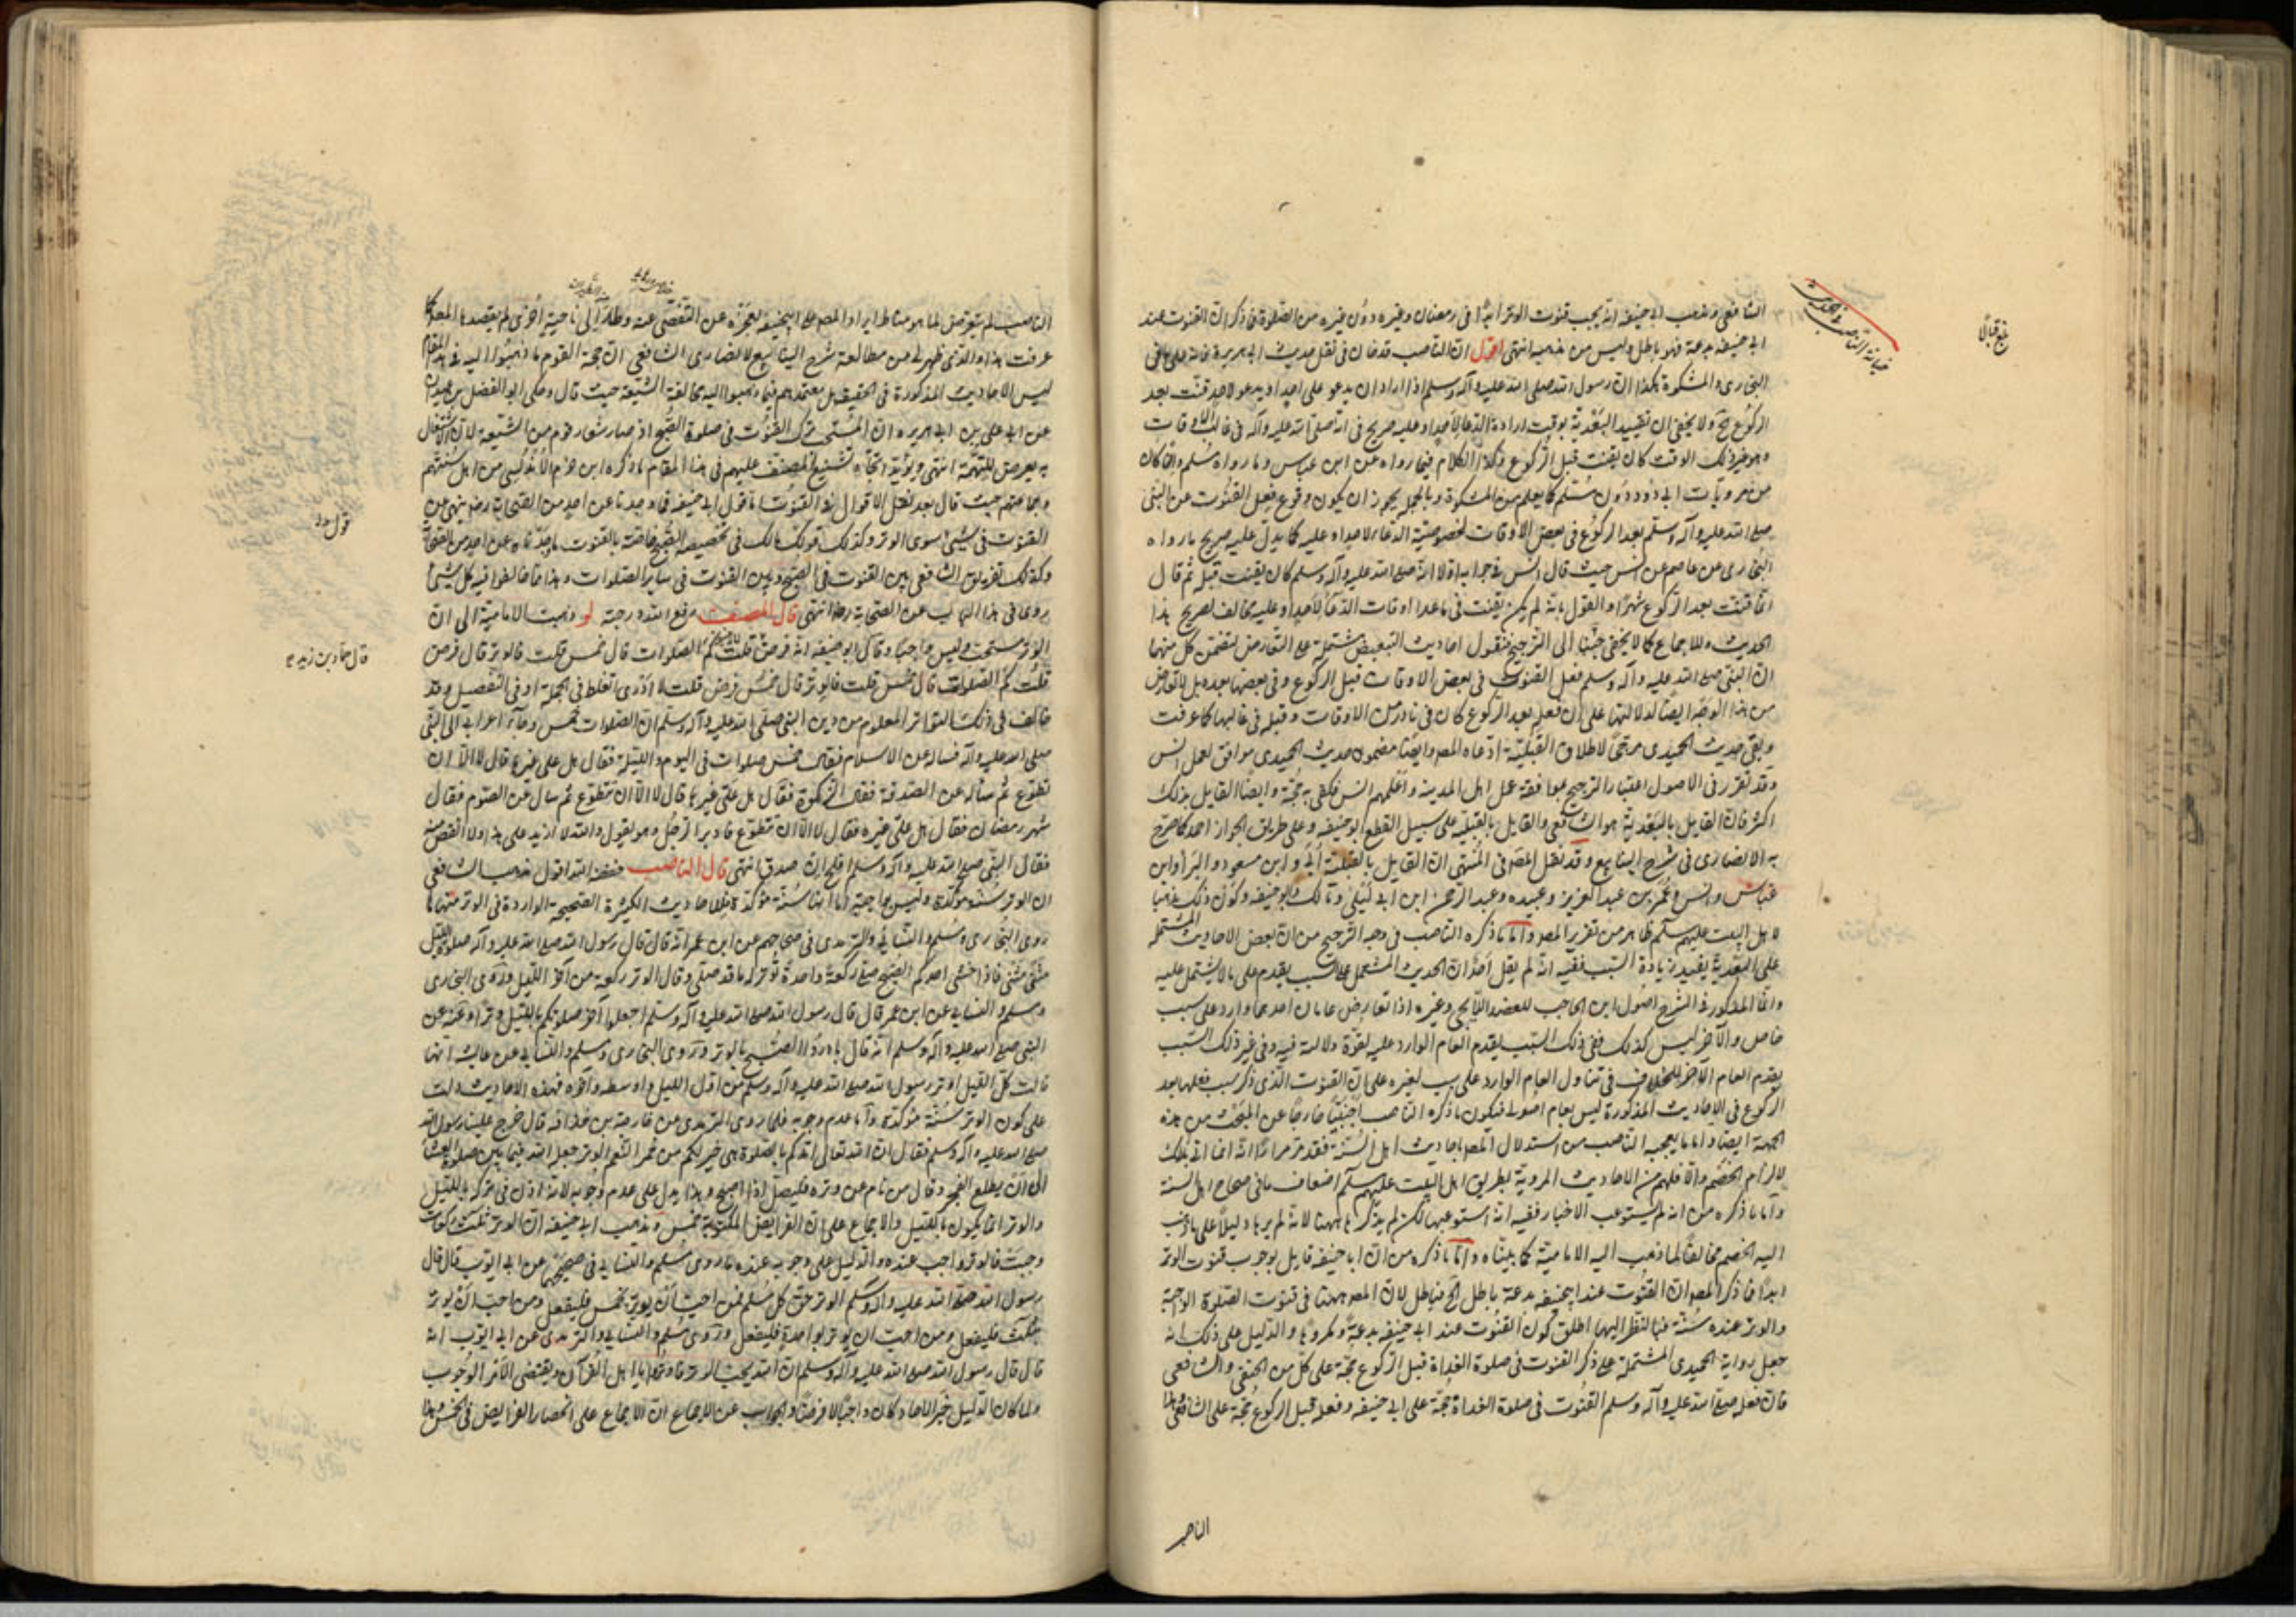 الشافعي ومذهب ابي حنيفه انه يجب قنوت الوتر ابدًا في رمضان وغيره دون غيره من الصلوة فما ذكر ان القنوت عند
ابي حنيفه بدعة فهو باطل وليس من مذهبه انتهى اقول ان الناصب قد خان في نقل حديث ابي هريرة فانه على ما في
البخاري والمشكوة هكذا ان رسول الله صلى الله عليه وآله وسلم اذا اراد ان يدعو على احد او يدعو لاحد قنت بعد
الركوع ولا يخفى ان تقييد البعدية بوقت ارادة الدعا لاحد او عليه صريح في انه صلى الله عليه وآله في غالب الاوقات
وهو غير ذلك الوقت كان يقنت قبل الركوع وكذا الكلام فيما رواه عن ابن عباس وما رواه مسلم وان كان
من مرويات ابي داود دون مسلم كما يعلم من المشكوة وبالجملة يجوز ان يكون وقوع فعل القنوت عن النبي
صلى الله عليه وآله وسلم بعد الركوع في بعض الاوقات لخصوصية الدعاء لاحد او عليه كما يدل عليه صريح ما رواه
البخاري عن عاصم عن انس حيث قال انس في جوابه اولا انه صلى الله عليه وآله وسلم كان يقنت قبله ثم قال
انما قنت بعد الركوع شهرًا والقول بانه لم يكن يقنت في ما عدا اوقات الدعا لاحد او عليه مخالف لصريح هذا
الحديث وللاجماع كما لا يخفى جئنا الى الترجيح فنقول احاديث التبعيض مشتملة على التعارض لتضمن كل منهما
ان النبي صلى الله عليه وآله وسلم فعل القنوت في بعض الاوقات قبل الركوع وفي بعضها بعده بل لا تعارض
من هذا الوجه ايضا لدلالتها على ان فعله بعد الركوع كان في نادر من الاوقات وقبله في غالبها كما عرفت
وبقي حديث الحميدي مرجحًا لاطلاق القبلية ادعاه المصر وايضًا مضمون حديث الحميدي موافق لعمل انس
وقد تقرر في الاصول اعتبار الترجيح بموافقة عمل اهل المدينة واعلمهم انس فكفى به حجة وايضًا القايل بذلك
اكثر فان القايل بالبعدية هو الشافعي والقايل بالقبلية على سبيل القطع ابو حنيفه وعلى طريق الجواز احمد كما صرح
به الانصاري في شرح الينابيع وقد نقل المصر في المنتهى ان القايل بالقبلية أبي وابن مسعود والبراء وابن
عباس وانس وعمر بن عبد العزيز وعبيده وعبد الرحمن ابن ابي ليلى ومالك وابو حنيفه وكون ذلك مذهبا
لاهل البيت عليهم سلم ظاهر من تقرير المصر واما ما ذكره الناصب في وجه الترجيح من ان بعض الاحاديث المشتملة
على البعدية يفيد زيادة السبب ففيه انه لم يقل احد ان الحديث المشتمل على السبب يقدم على ما لا يشتمل عليه
وانما المذكور في الشرح اصول ابن الحاجب للعضد الايجي وغيره اذا تعارض عامان احدهما وارد على سبب
خاص والآخر ليس كذلك ففي ذلك السبب يقدم العام الوارد عليه لقوة دلالته فيه وفي غير ذلك السبب
يقدم العام الآخر للخلاف في تناول العام الوارد على سبب لغيره على ان القنوت الذي ذكر سبب فعلها بعد
الركوع في الاحاديث المذكورة ليس بعام اصولي فيكون ما ذكره الناصب اجنبيًا خارجًا عن المبحث من هذه
الجهة ايضا واما ما يعجب الناصب من استدلال المصر باحاديث اهل السنة فقد مر مرارًا انه انما اتى بذلك
لالزام الخصم والا فلهم من الاحاديث المروية بطريق اهل البيت عليهم سلم اضعاف ما في صحاح اهل السنة
واما ما ذكره من انه لم يستوعب الاخبار ففيه انه استوعبها لكن لم يذكرها ههنا لانه لم يرها دليلًا على ما ذهب
اليه الخصم مخالفًا لما ذهب اليه الامامية كما بيناه واما ما ذكره من ان ابا حنيفه قايل بوجوب قنوت الوتر
ابدًا فما ذكر المصر ان القنوت عند ابي حنيفه بدعة باطل الخ فباطل لان المصر ههنا في قنوت الصلوة الواجبة
والوتر عنده سنة فبالنظر اليها اطلق كون القنوت عند ابي حنيفه بدعةً ومكروهًا والدليل على ذلك انه
جعل رواية الحميدي المشتملة على ذكر القنوت في صلوة الغداة قبل الركوع حجة على كل من الحنفي والشافعي
فان فعله صلى الله عليه وآله وسلم القنوت في صلوة الغداة حجة على ابي حنيفه وفعله قبل الركوع حجة على الشافعي ولهذا
الناصب
خيانة الناصب في الحديث
بلغ قبالًا
الناصب لم يتعرض لما هو مناط ايراد المصر على ابي حنيفه لعجزه عن التفصي عنه وطار الى ناحية اخرى لم يقصدها المصر كما
عرفت هذا والذي ظهر لي من مطالعة شرح الينابيع للانصاري الشافعي ان حجة القوم ما ذهبوا اليه في هذا المقام
ليس الاحاديث المذكورة في الحقيقة بل معتمدهم فيما ذهبوا اليه مخالفة الشيعة حيث قال وحكى ابو الفضل بن عبدان
عن ابي علي بن ابي هريرة ان المستحب ترك القنوت في صلوة الصبح اذ صار شعار قوم من الشيعة لان الاشتغال
به يعرض للتهمة انتهى ويؤيد اتجاه تشنيع المصنف عليهم في هذا المقام ما ذكره ابن حزم الاندلسي من اهل سنتهم
وجماعتهم حيث قال بعد نقل الاقوال في القنوت اما قول ابي حنيفه فما وجدنا عن احد من الصحابة رضه نهى عن
القنوت في شيئ سوى الوتر وكذلك قول مالك في تخصيصه الصبح خاصة بالقنوت ما وجدناه عن احد من الصحابة
وكذلك تفريق الشافعي بين القنوت في الصبح وبين القنوت في ساير الصلوات وهذا مما خالفوا فيه كل شيئ
روي في هذا الباب عن الصحابة رضه انتهى قال المصنف رفع الله درجته لو ذهبت الامامية الى ان
الوتر مستحب وليس واجبًا وقال ابو حنيفه انه فرض قلت كم الصلوات قال خمس قلت فالوتر قال فرض
قلت كم الصلوات قال خمس قلت فالوتر قال خمس فرض قلت لا ادري اتغلط في الجملة او في التفصيل وقد
خالف في ذلك التواتر المعلوم من دين النبي صلى الله عليه وآله وسلم ان الصلوات خمس وجاء اعرابي الى النبي
صلى الله عليه وآله فساله عن الاسلام فقال خمس صلوات في اليوم والليلة فقال هل علي غيرها قال لا الا ان
تطوع ثم سأله عن الصدقة فقال الزكوة فقال هل علي غيرها قال لا الا ان تتطوع ثم سال عن الصوم فقال
شهر رمضان فقال هل علي غيره فقال لا الا ان تتطوع فادبر الرجل وهو يقول والله لا ازيد على هذا ولا انقص منه
فقال النبي صلى الله عليه وآله وسلم افلح ان صدق انتهى قال الناصب خفضه الله اقول مذهب الشافعي
ان الوتر سنة مؤكدة وليس بواجبة اما انها سنة مؤكدة فللاحاديث الكثيرة الصحيحة الواردة في الوتر منها ما
روى البخاري ومسلم والنسائي والترمذي في صحاحهم عن ابن عمر انه قال قال رسول الله صلى الله عليه وآله صلوة الليل
مثنى مثنى فاذا خشي احدكم الصبح صلى ركعة واحدة توتر له ما قد صلى وقال الوتر ركعة من آخر الليل وروى البخاري
ومسلم والنسائي عن ابن عمر قال قال رسول الله صلى الله عليه وآله وسلم اجعلوا آخر صلوتكم بالليل وترًا وعنه عن
النبي صلى الله عليه وآله وسلم انه قال بادروا الصبح بالوتر وروى البخاري ومسلم والنسائي عن عائشه انها
قالت كل الليل اوتر رسول الله صلى الله عليه وآله وسلم من اول الليل واوسطه وآخره فهذه الاحاديث دلت
على كون الوتر سنة مؤكدة واما عدم وجوبه فلما روى الترمذي عن خارجة بن حذافه قال خرج علينا رسول الله
صلى الله عليه وآله وسلم فقال ان الله تعالى امدكم بالصلوة هي خير لكم من حمر النعم الوتر جعل الله فيما بين صلوة العشا
الى ان يطلع الفجر وقال من نام عن وتره فليصل اذا اصبح وهذا يدل على عدم وجوبه لانه اذن في تركه بالليل
والوتر انما يكون بالليل والاجماع على ان الفرايض المكتوبة خمس ومذهب ابي حنيفه ان الوتر ثلث ركعات
وجبت فالوتر واجب عنده والدليل على وجوبه عنده ما روى مسلم والنسائي في صحيحهما عن ابي ايوب قال قال
رسول الله صلى الله عليه وآله وسلم الوتر حق كل مسلم فمن احب ان يوتر بخمس فليفعل ومن احب ان يوتر
بثلث فليفعل ومن احب ان يوتر بواحدة فليفعل وروى مسلم والنسائي والترمذي عن ابي ايوب انه
قال قال رسول الله صلى الله عليه وآله وسلم ان الله يحب الوتر فاوتروا يا اهل القرآن ويقتضي الامر الوجوب
ولما كان الدليل خبر الآحاد كان واجبًا لا فرضًا والجواب عن الاجماع ان الاجماع على انحصار الفرايض في الخمس وهذا
قال حماد بن زيد